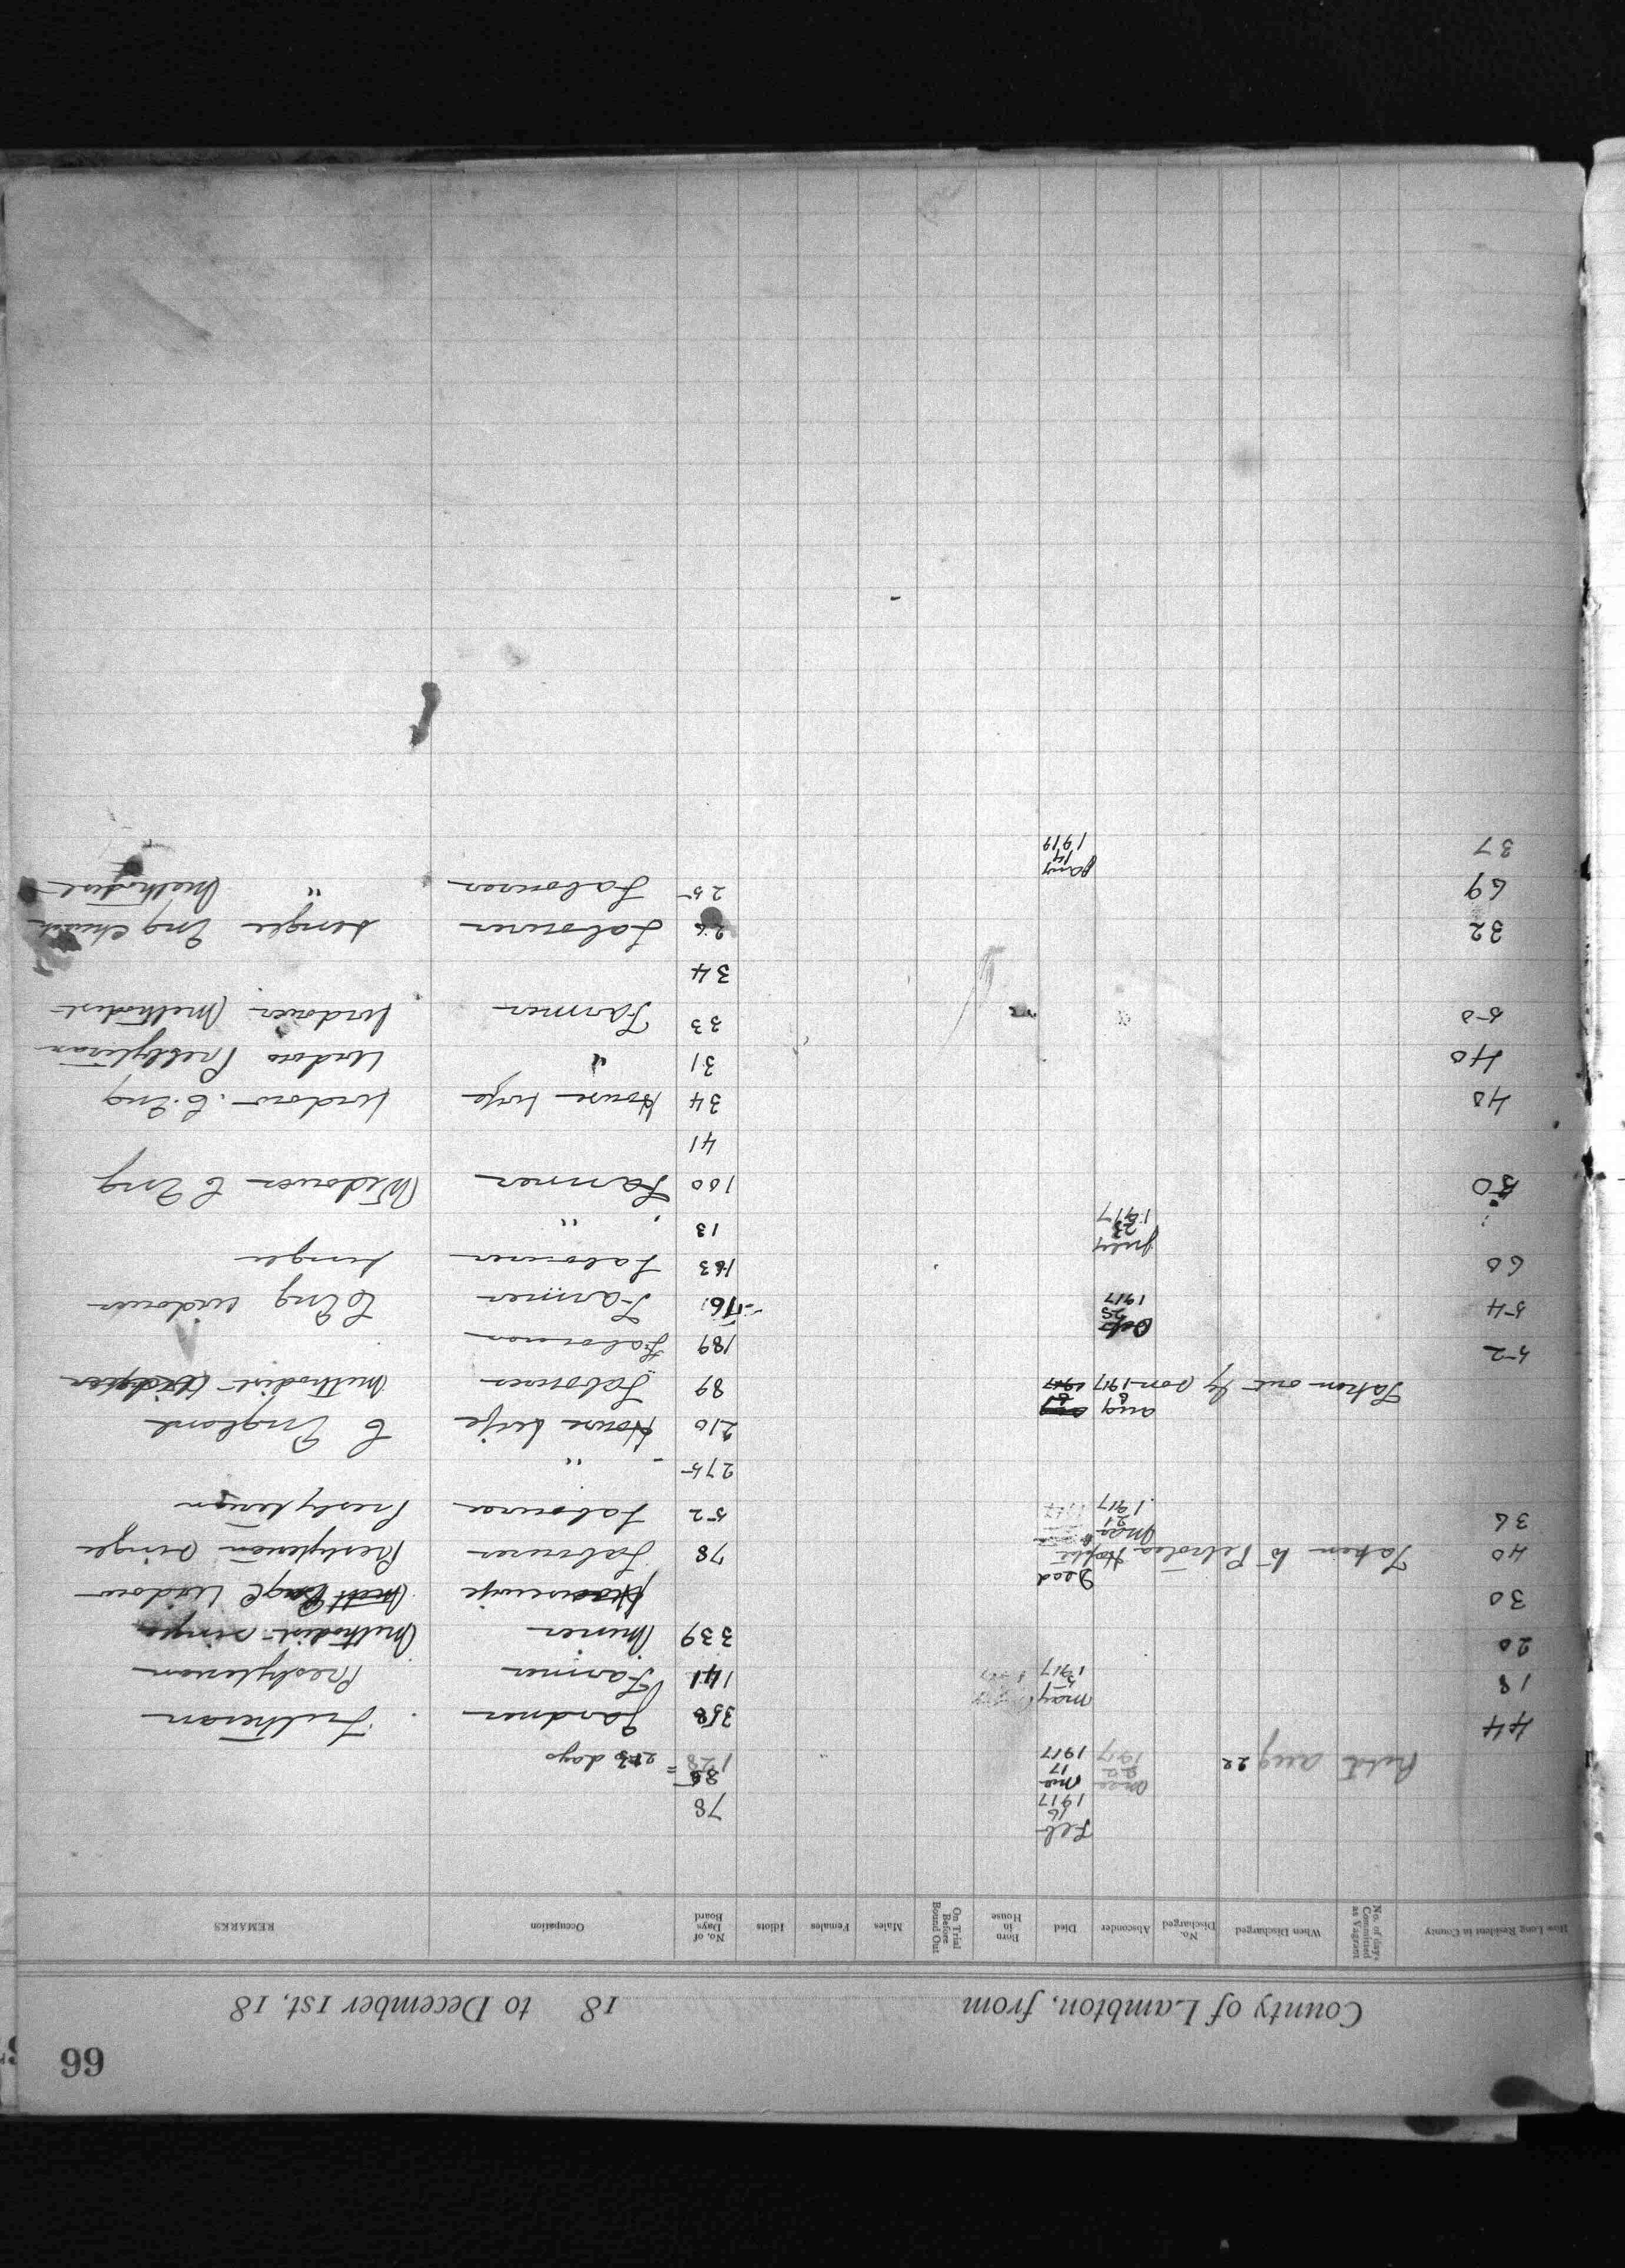 66
County of Lambton, from 18 to December 1st, 18
How Long Resident in County | No. of days Committed as Vagrant | When Discharged | No. Discharged | Absconder | Died | Born in House | On Trial Before Bound Out | Males | Females | Idiots | No. of Days Board | Occupation | REMARKS
Feb 16 1917 78
Retd Aug 22 1917 17 1917 86 128 = 213 days
44 358 Gardner Lutheran
18 May 5 1917 141 Farmer Presbyterian
20 339 Miner Methodist - single
30 Housewife Widow
40 Taken to Petrolea Hospt Dead 78 Labourer Presbyterian Single
36 Mar 21 1917 52 Labourer Presbyterian
275 "
210 House wife C England
Taken out by son 1917 Aug 8 1917 89 Labourer Methodist Widower
52 189 Labourer
54 Oct 25 1917 176 Farmer C Eng widower
60 163 Labourer Single
July 23 1917 13 "
50 100 Farmer Widower C Eng
41
40 34 House wife Widow. C. Eng
40 31 " Widow Presbyterian
50 33 Farmer Widower Methodist
34
32 26 Labourer Single Eng Church
69 25 Labourer " Methodist
37 Jany 14 1919